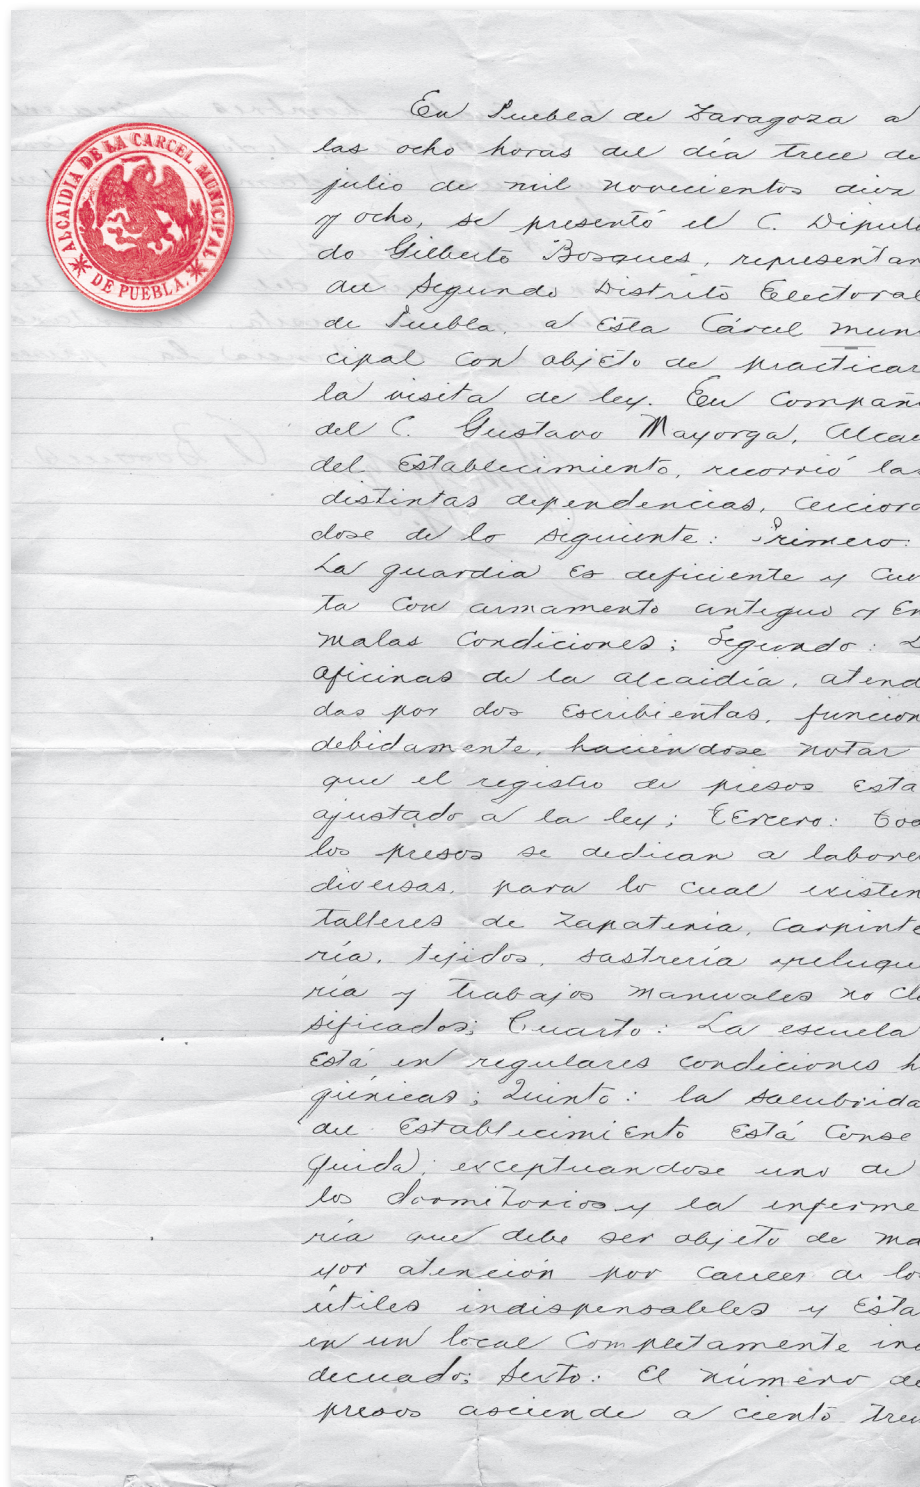 ALCAIDIA DE LA CARCEL MUNICIPAL
DE PUEBLA.
En Puebla de Zaragoza a
las ocho horas del día trece de
julio de mil novecientos diez
y ocho, se presentó el C. Diputa
do Gilberto Bosques, representan
del Segundo Distrito Electoral
de Puebla, a esta Cárcel mun
cipal con objeto de practicar
la visita de ley. En compañ
del C. Gustavo Mayorga, Alcai
del Establecimiento, recorrió las
distintas dependencias, cerciora
dose de lo siguiente: Primero:
La guardia es deficiente y cuen
ta con armamento antiguo y en
malas condiciones; Segundo: L
oficinas de la alcaidía, atend
das por dos escribientas, funcion
debidamente, haciendose notar
que el registro de presos esta
ajustado a la ley; Tercero: Tod
los presos se dedican a labore
diversas, para lo cual existen
talleres de zapatería, carpinte
ría, tejidos, sastrería peluque
ría y trabajos manuales no cla
sificados; Cuarto: La escuela
está en regulares condiciones h
giénicas; Quinto: la salubrida
del Establecimiento está conse
guida, exceptuandose uno de
los dormitorios y la enferme
ría que debe ser objeto de ma
yor atención por carecer de lo
útiles indispensables y esta
en un local completamente ina
decuado; Sexto: El número de
presos asciende a ciento trei